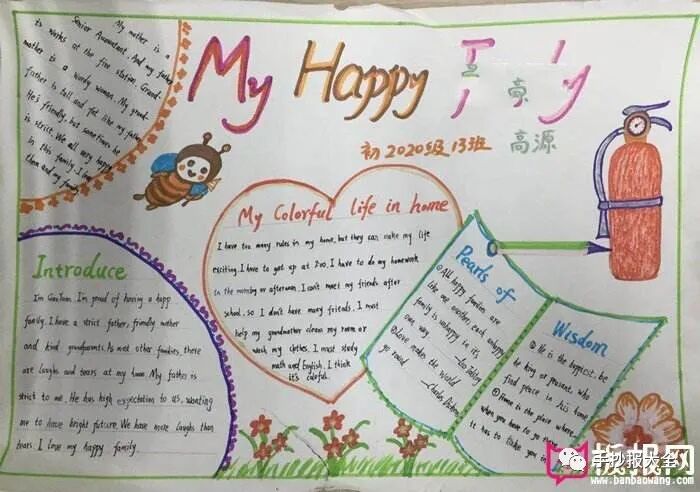 My Happy
初2020级13班
高源
My mother is a
Senior Accountant. And my father
is works at the fire station. Grand-
mother is a wordy woman. My grand-
father is tall and fat like my father
He's friendly, but sometimes he
is strict. We all very happy
in this family. I love
them and my family
Introduce
I'm GaoYuan. I'm proud of having a happ
family. I have a strict father, friendly mother
and kind grandparents. As most other families, there
are laughs and tears at my home. My father is
strict to me. He has high expectation to us, wanting
me to have bright future. We have more laughs than
tears. I love my happy family.
My Colorful life in home
I have too many rules in my home, but they can make my life
exciting. I have to get up at 7:00. I have to do my homework
in the morning or afternoon. I can't meet my friends after
school, so I don't have many friends. I must
help my grandmother clean my room or
wash my clothes. I must study
math and English. I think
it's colorful.
Pearls of
①All happy families are
like one another, each unhappy
family is unhappy in its
own way.
②Love makes the world
go round.
Wisdom
① He is the happiest, be
he king or peasant, who
find peace in his home
②Home is the place where,
when you have to go there
it has to take you in
手抄报大全
板报网
www.banbaowang.com